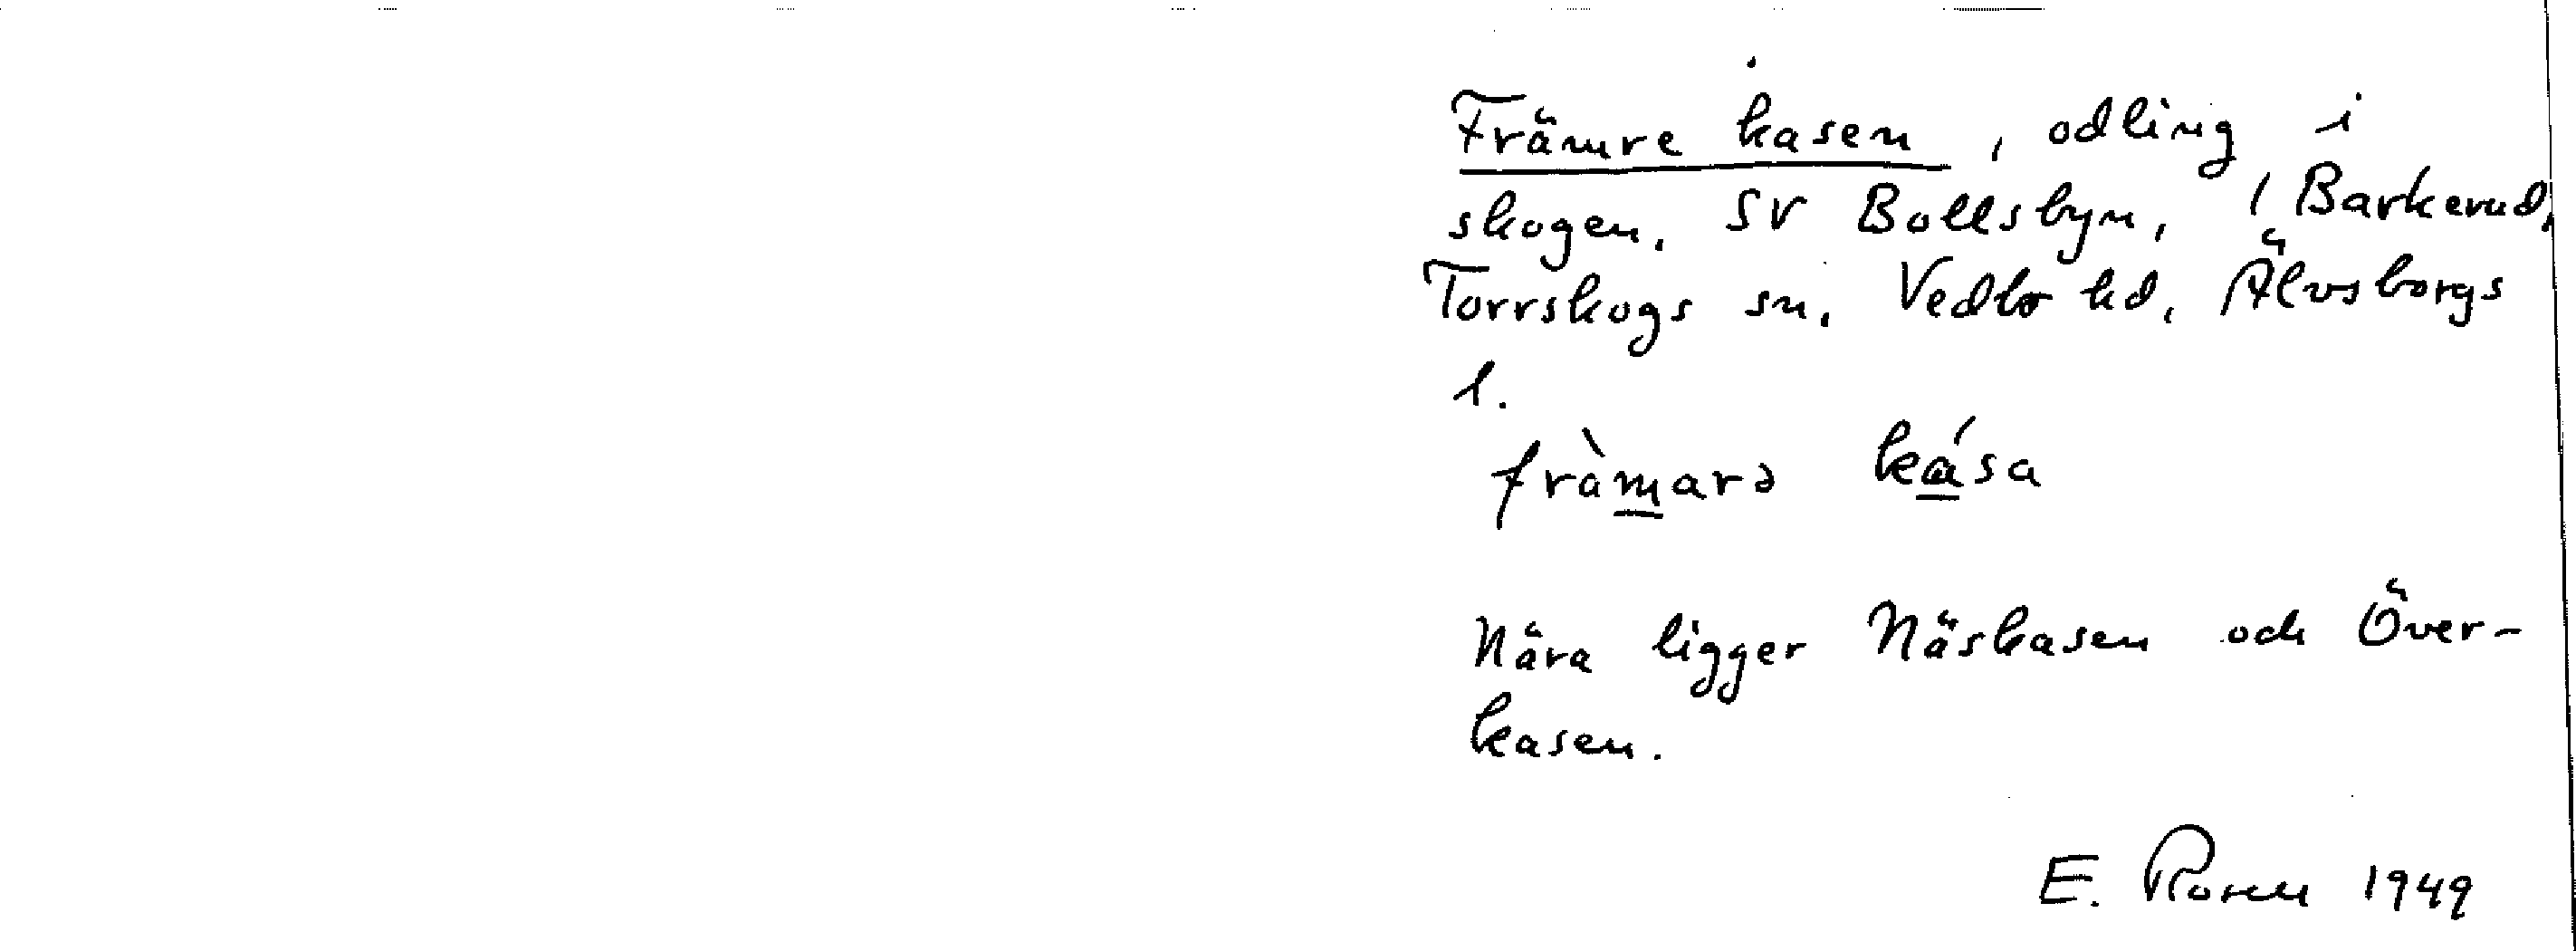 Främre kasen, odling i
skogen. SV Bollsbyn, 1 Barkerud,
Torrskogs sn. Vedbo hd, Älvsborgs
l.
fràmarə kása
Nära ligger Näskasen och Över-
kasen.
E. Rosen 1949